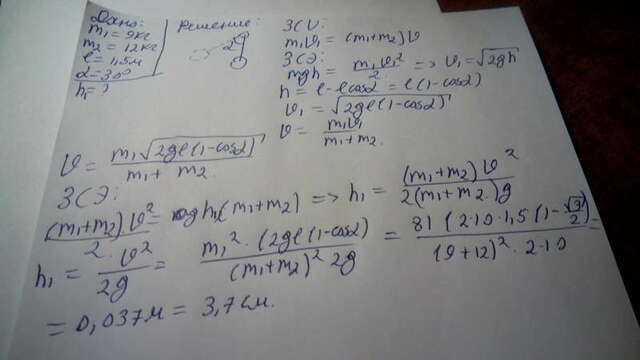 Дано:
m₁ = 9кг
m₂ = 12кг
l = 1,5м
α = 30°
h₁ = ?
Решение:
ЗСИ:
m₁v₁ = (m₁+m₂)v
ЗСЭ:
mgh = m₁v₁²/2 => v₁ = √2gh
h = l - lcosα = l(1-cosα)
v₁ = √2gl(1-cosα)
v = m₁v₁/(m₁+m₂)
v = m₁√2gl(1-cosα)/(m₁+m₂)
ЗСЭ:
(m₁+m₂)v²/2 = gh₁(m₁+m₂) => h₁ = (m₁+m₂)v²/2(m₁+m₂)g
h₁ = v²/2g = m₁²·(2gl(1-cosα)/(m₁+m₂)²2g = 81(2·10·1,5(1-√3/2)/(9+12)²·2·10 =
= 0,037м = 3,7см.